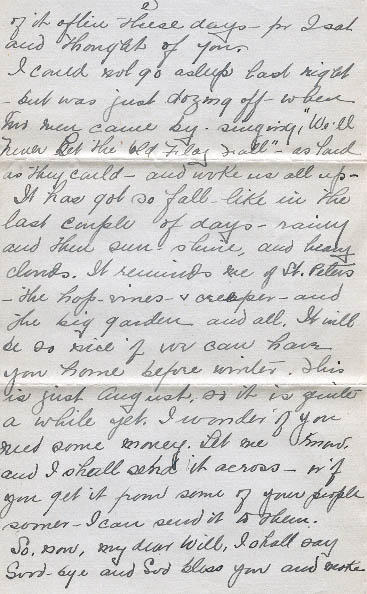 of it often these days - for I sat
and thought of you.
I could not go asleep last night
- but was just dozing off - when
two men came by - singing, "We'll
never Let the Old Flag Fall" - as loud
as they could - and woke us all up -
It has got so fall-like in the
last couple of days - rainy
and then sun shine, and heavy
clouds. It reminds me of St. Peters
- the hop-vines - & creeper - and
the big garden and all. It will
be so nice if we can have
you home before winter. This
is just August, so it is quite
a while yet. I wonder if you
need some money. Let me know.
and I shall send it across - or if
you get it from some of your people
sooner - I can send it to them.
So, now, my dear Will, I shall say
Good-bye and God bless you and make